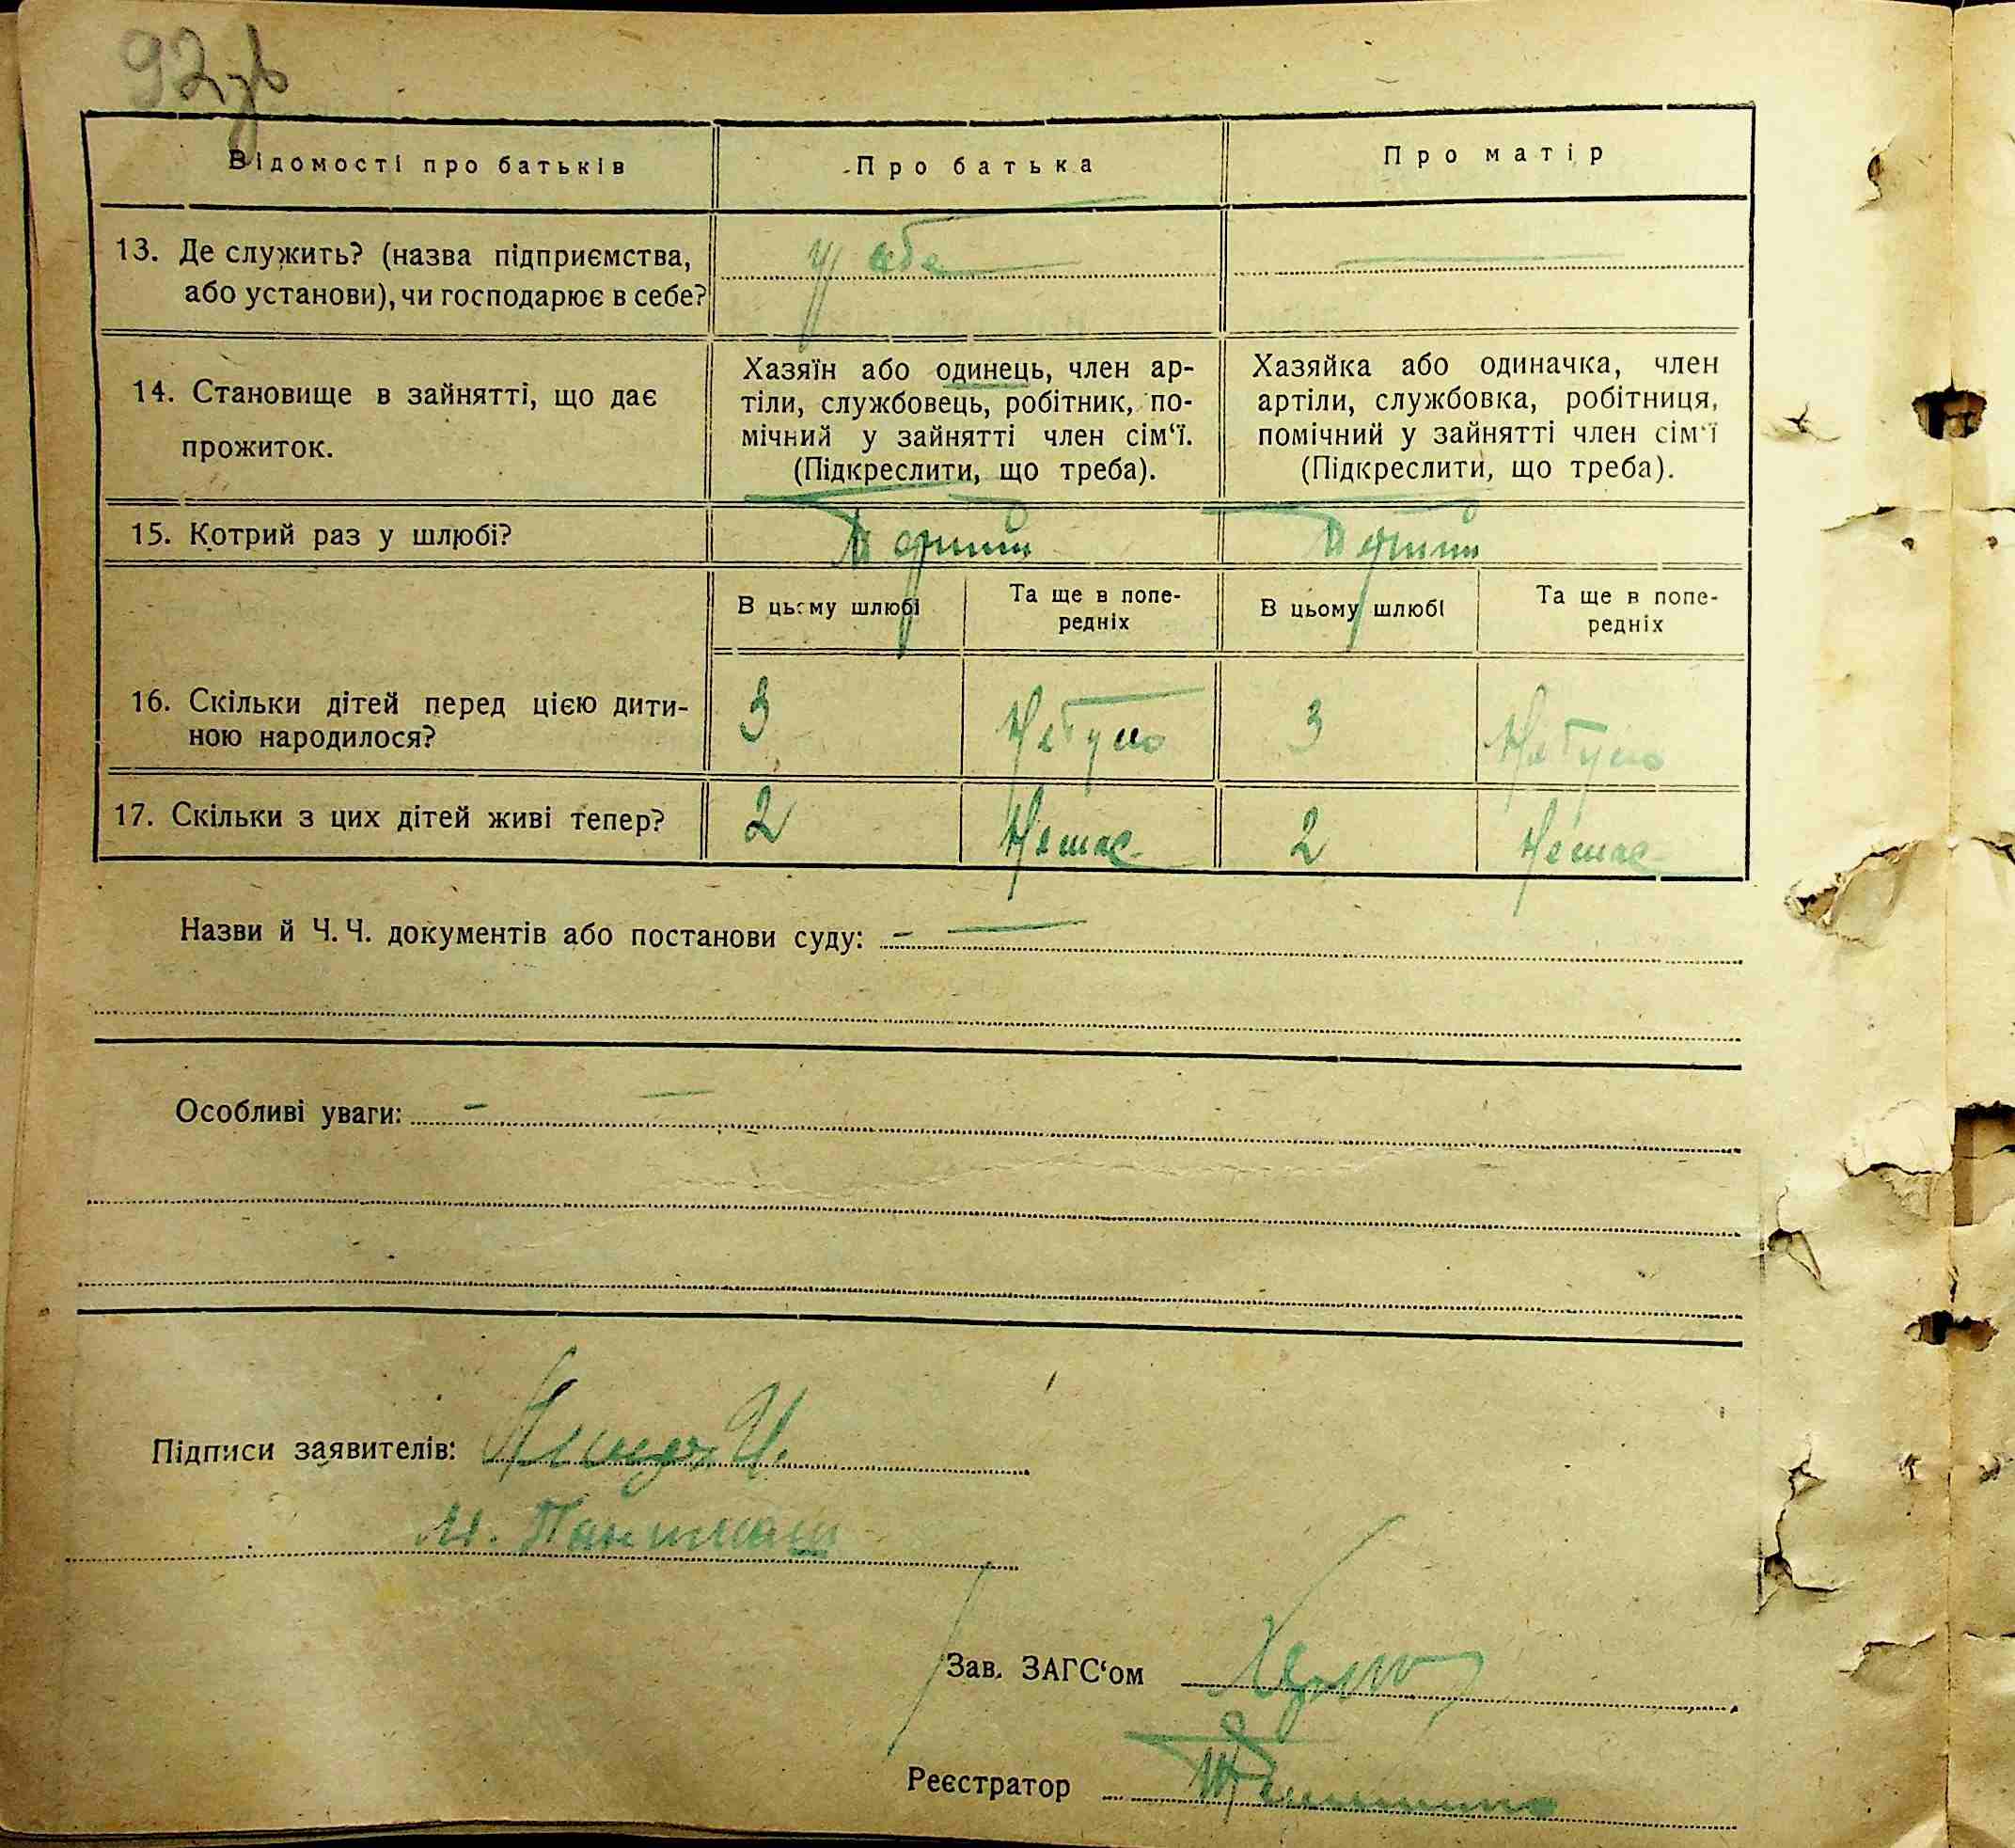 92зв
Відомості про батьків Про батька Про матір
13. Де служить? (назва підприємства, у себе —
або установи), чи господарює в себе?
14. Становище в зайнятті, що дає
прожиток.
Хазяїн або одинець, член ар-
тіли, службовець, робітник, по-
мічний у зайнятті член сім‘ї.
(Підкреслити, що треба).
Хазяйка або одиначка, член
артіли, службовка, робітниця,
помічний у зайнятті член сім‘ї
(Підкреслити, що треба).
15. Котрий раз у шлюбі? Перший Перший
В цьому шлюбі Та ще в попе-
редніх
В цьому шлюбі Та ще в попе-
редніх
16. Скільки дітей перед цією дити-
ною народилося?
3 Не було 3 Не було
17. Скільки з цих дітей живі тепер? 2 Немає 2 Немає
Назви й Ч. Ч. документів або постанови суду: –
Особливі уваги: –
Підписи заявителів:
Зав. ЗАГС‘ом
Реєстратор